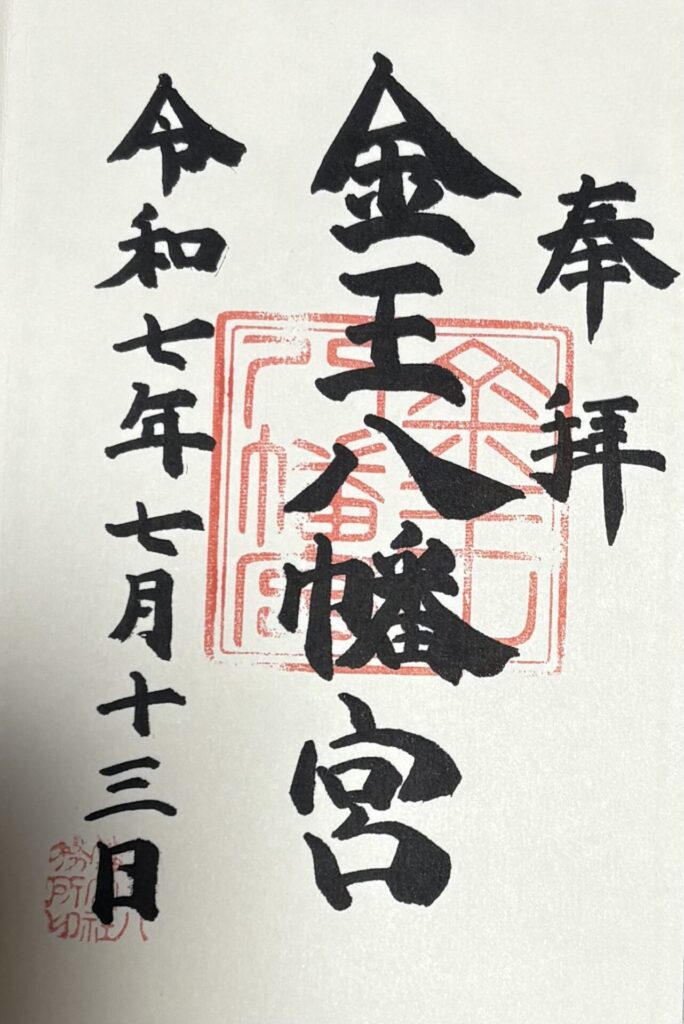 奉拝
金王八幡宮
令和七年七月十三日